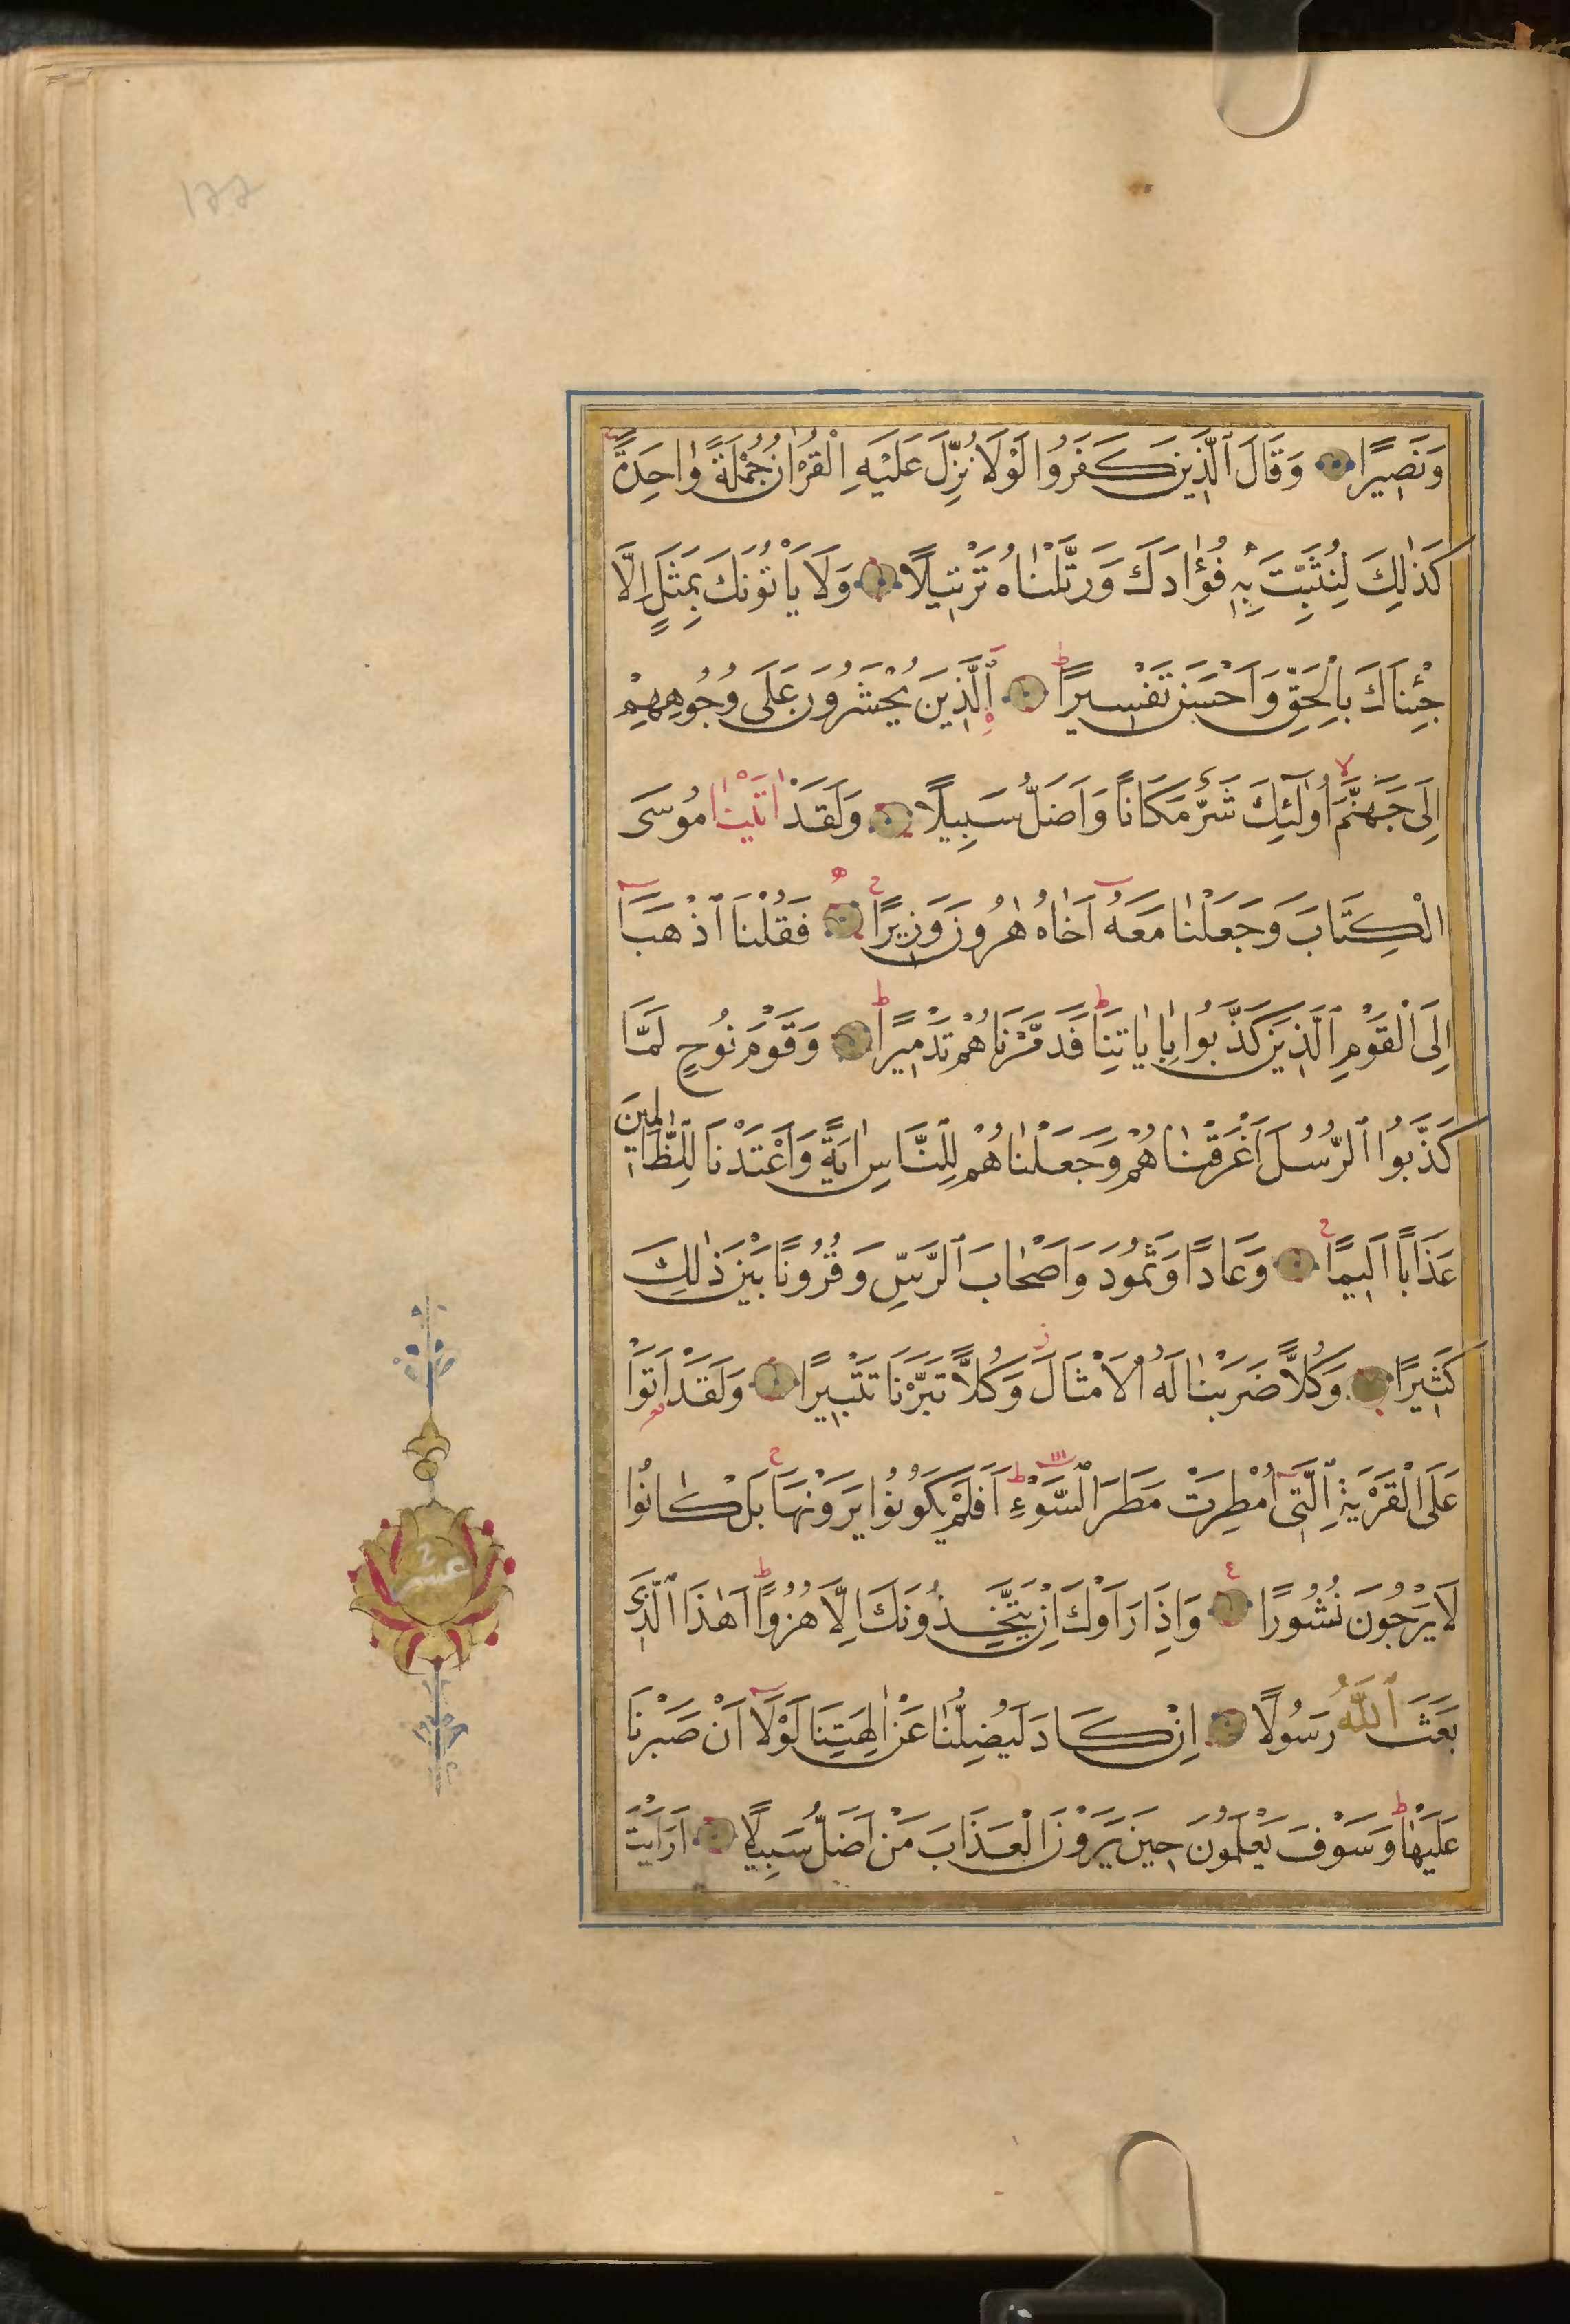 وَنَصِيرًا وَقَالَ ٱلَّذِينَ كَفَرُوا لَوْلَا نُزِّلَ عَلَيْهِ الْقُرْاٰنُ جُمْلَةً وٰاحِدَةً
كَذٰلِكَ لِنُثَبِّتَ بِهٖ فُؤٰادَكَ وَرَتَّلْنٰاهُ تَرْتِيلًا وَلَا يَاْتُونَكَ بِمَثَلٍ اِلَّا
جِئْنَاكَ بِالْحَقِّ وَاَحْسَنَ تَفْسِيرًا ٱلَّذِينَ يُحْشَرُونَ عَلَى وُجُوهِهِمْ
اِلَى جَهَنَّمَ اُولٰٓئِكَ شَرٌّ مَكَانًا وَاَضَلُّ سَبِيلًا وَلَقَدْ اٰتَيْنٰا مُوسَى
الْكِتَابَ وَجَعَلْنٰا مَعَهُ اَخٰاهُ هٰرُونَ وَزِيرًا فَقُلْنَا ٱذْهَبَا
اِلَى الْقَوْمِ ٱلَّذِينَ كَذَّبُوا بِاٰيٰاتِنَا فَدَمَّرْنَاهُمْ تَدْمِيرًا وَقَوْمَ نُوحٍ لَمَّا
كَذَّبُوا ٱلرُّسُلَ اَغْرَقْنٰاهُمْ وَجَعَلْنٰاهُمْ لِلنَّاسِ اٰيَةً وَاَعْتَدْنَا لِلظَّالِمِينَ
عَذَابًا اَلِيمًا وَعَادًا وَثَمُودَ وَاَصْحٰابَ ٱلرَّسِّ وَقُرُونًا بَيْنَ ذٰلِكَ
كَثِيرًا وَكُلًّا ضَرَبْنٰا لَهُ ٱلْاَمْثَالَ وَكُلًّا تَبَّرْنَا تَتْبِيرًا وَلَقَدْ اَتَوْا
عَلَى الْقَرْيَةِ ٱلَّتِى اُمْطِرَتْ مَطَرَ ٱلسَّوْءِ اَفَلَمْ يَكُونُوا يَرَوْنَهَا بَلْ كَانُوا
لَا يَرْجُونَ نُشُورًا وَاِذَا رَاَوْكَ اِنْ يَتَّخِذُونَكَ اِلَّا هُزُوًا اَهٰذَا ٱلَّذِى
بَعَثَ ٱللّٰهُ رَسُولًا اِنْ كَادَ لَيُضِلُّنٰا عَنْ اٰلِهَتِنَا لَوْلَا اَنْ صَبَرْنَا
عَلَيْهٰا وَسَوْفَ يَعْلَمُونَ حِينَ يَرَوْنَ الْعَذَابَ مَنْ اَضَلُّ سَبِيلًا اَرَاَيْتَ
عشر